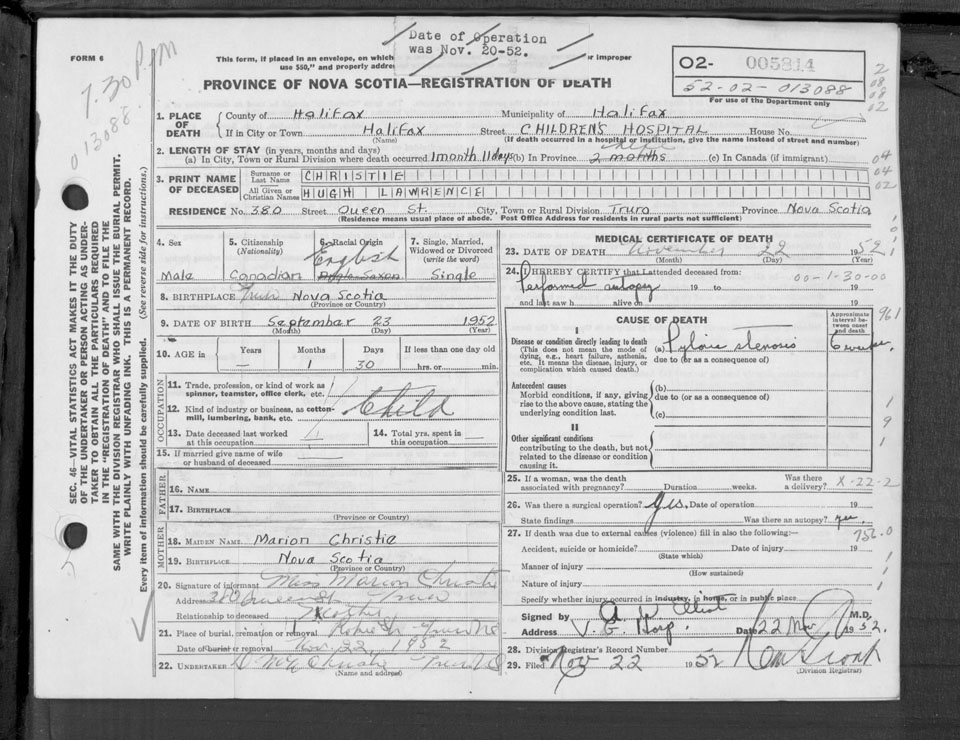 Date of Operation
was Nov. 20-52.
FORM 6
7.30 P.M
013088
This form, if placed in an envelope, on which
use $50," and properly addre
or improper
PROVINCE OF NOVA SCOTIA—REGISTRATION OF DEATH
O2- 005814
52-02-013088
For use of the Department only
SEC. 46—VITAL STATISTICS ACT MAKES IT THE DUTY
OF THE UNDERTAKER OR PERSON ACTING AS UNDER-
TAKER TO OBTAIN ALL THE PARTICULARS REQUIRED
IN THE "REGISTRATION OF DEATH" AND TO FILE THE
SAME WITH THE DIVISION REGISTRAR WHO SHALL ISSUE THE BURIAL PERMIT.
WRITE PLAINLY WITH UNFADING INK. THIS IS A PERMANENT RECORD.
Every item of information should be carefully supplied. (See reverse side for instructions.)
1. PLACE OF DEATH
County of Halifax Municipality of Halifax
If in City or Town Halifax Street CHILDREN'S HOSPITAL House No.
(Name) (If death occurred in a hospital or institution, give the name instead of street and number)
2. LENGTH OF STAY (in years, months and days)
(a) In City, Town or Rural Division where death occurred 1 month 11 days (b) In Province 2 months (c) In Canada (if immigrant)
3. PRINT NAME OF DECEASED
Surname or Last Name CHRISTIE
All Given or Christian Names HUGH LAWRENCE
RESIDENCE No. 380 Street Queen St. City, Town or Rural Division Truro Province Nova Scotia
(Residence means usual place of abode. Post Office Address for residents in rural parts not sufficient)
4. Sex
Male
5. Citizenship (Nationality)
Canadian
6. Racial Origin
English
Anglo Saxon
7. Single, Married, Widowed or Divorced (write the word)
Single
8. BIRTHPLACE Truro Nova Scotia
(Province or Country)
9. DATE OF BIRTH September 23 1952
(Month) (Day) (Year)
10. AGE in Years Months Days If less than one day old
— 30 hrs. or min.
OCCUPATION
11. Trade, profession, or kind of work as spinner, teamster, office clerk, etc.
12. Kind of industry or business, as cotton-mill, lumbering, bank, etc.
Child
13. Date deceased last worked at this occupation
14. Total yrs. spent in this occupation
15. If married give name of wife or husband of deceased
FATHER
16. NAME
17. BIRTHPLACE
(Province or Country)
MOTHER
18. MAIDEN NAME Marion Christie
19. BIRTHPLACE Nova Scotia
(Province or Country)
20. Signature of informant Miss Marion Christie
Address 380 Queen St Truro
Relationship to deceased Mother
21. Place of burial, cremation or removal Truro NS
Date of burial or removal Nov 22, 1952
22. UNDERTAKER Christie Truro NS
(Name and address)
MEDICAL CERTIFICATE OF DEATH
23. DATE OF DEATH November 22 1952
(Month) (Day) (Year)
24. I HEREBY CERTIFY that I attended deceased from:
00-1-30-00
Performed autopsy 19 to 19
and last saw h alive on 19
CAUSE OF DEATH
Approximate interval between onset and death
I
Disease or condition directly leading to death
(This does not mean the mode of dying, e.g., heart failure, asthenia, etc. It means the disease, injury, or complication which caused death.)
(a) Pyloric stenosis 6 weeks
due to (or as a consequence of)
Antecedent causes
Morbid conditions, if any, giving rise to the above cause, stating the underlying condition last.
(b)
due to (or as a consequence of)
(c)
II
Other significant conditions
contributing to the death, but not related to the disease or condition causing it.
25. If a woman, was the death associated with pregnancy? Duration weeks. Was there a delivery?
X-22-2
26. Was there a surgical operation? Yes. Date of operation 19
State findings Was there an autopsy? yes
27. If death was due to external causes (violence) fill in also the following:—
752.0
Accident, suicide or homicide? Date of injury 19
(State which)
Manner of injury
(How sustained)
Nature of injury
Specify whether injury occurred in industry, in home, or in public place
Signed by Elliot M.D.
Address V. G. Hosp. Date 22 Nov 1952.
28. Division Registrar's Record Number
29. Filed Nov 22 1952
(Division Registrar)